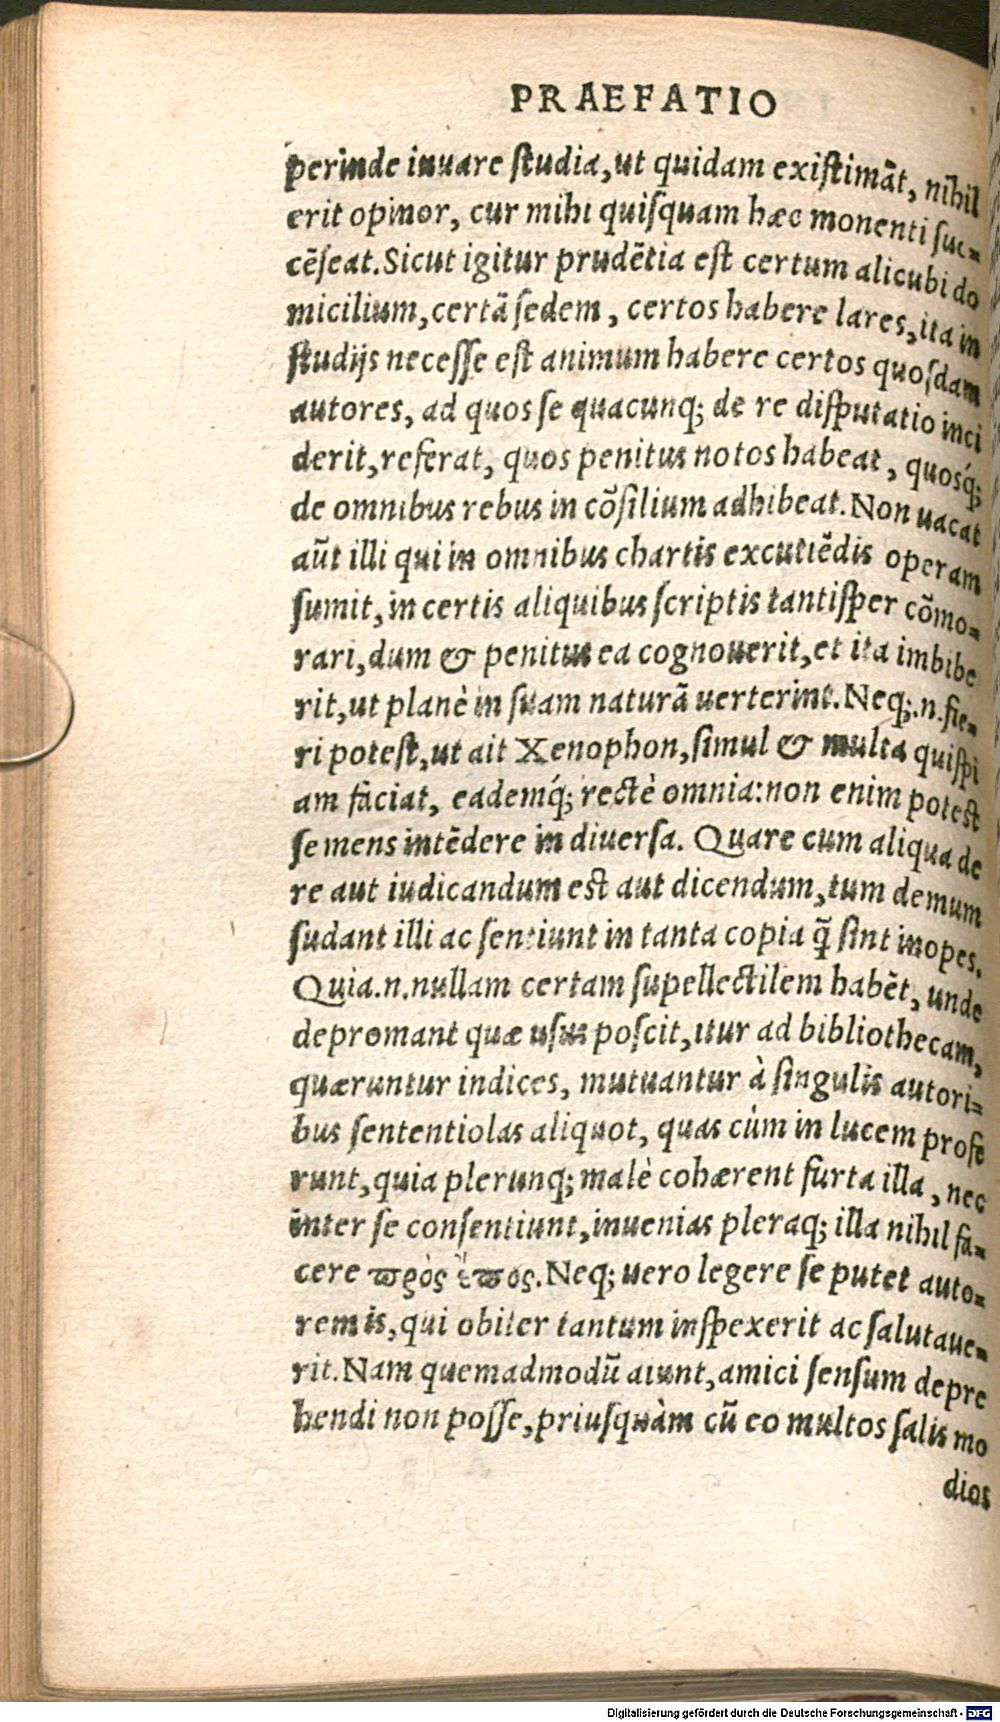 PRAEFATIO
perinde iuuare ſtudia, ut quidam exiſtimãt, nihil
erit opinor, cur mihi quiſquam hæc monenti ſuc=
cẽſeat. Sicut igitur prudẽtia eſt certum alicubi do
micilium, certã ſedem, certos habere lares, ita in
ſtudijs neceſſe eſt animum habere certos quoſdam
autores, ad quos ſe quacunq; de re diſputatio inci
derit, referat, quos penitus notos habeat, quosq́;
de omnibus rebus in cõſilium adhibeat. Non uacat
aũt illi qui in omnibus chartis excutiẽdis operam
ſumit, in certis aliquibus ſcriptis tantiſper cõmo=
rari, dum & penitus ea cognouerit, et ita imbibe
rit, ut planè in ſuam naturã uerterint. Neq;.n.fie=
ri poteſt, ut ait Xenophon, ſimul & multa quiſpi
am faciat, eademq́; rectè omnia: non enim poteſt
ſe mens intẽdere in diuerſa. Quare cum aliqua de
re aut iudicandum eſt aut dicendum, tum demum
ſudant illi ac ſentiunt in tanta copia q̃ ſint inopes.
Quia.n.nullam certam ſupellectilem habẽt, unde
depromant quæ uſus poſcit, itur ad bibliothecam,
quæruntur indices, mutuantur à ſingulis autori=
bus ſententiolas aliquot, quas cùm in lucem profe
runt, quia plerunq; malè cohærent furta illa, nec
inter ſe conſentiunt, inuenias pleraq; illa nihil fa=
cere ϖρὸς ἔϖος. Neq; uero legere ſe putet auto=
rem is, qui obiter tantum inſpexerit ac ſalutaue=
rit. Nam quemadmodũ aiunt, amici ſenſum depre
hendi non poſſe, priuſquàm cũ eo multos ſalis mo
dios
Digitalisierung gefördert durch die Deutsche Forschungsgemeinschaft - DFG